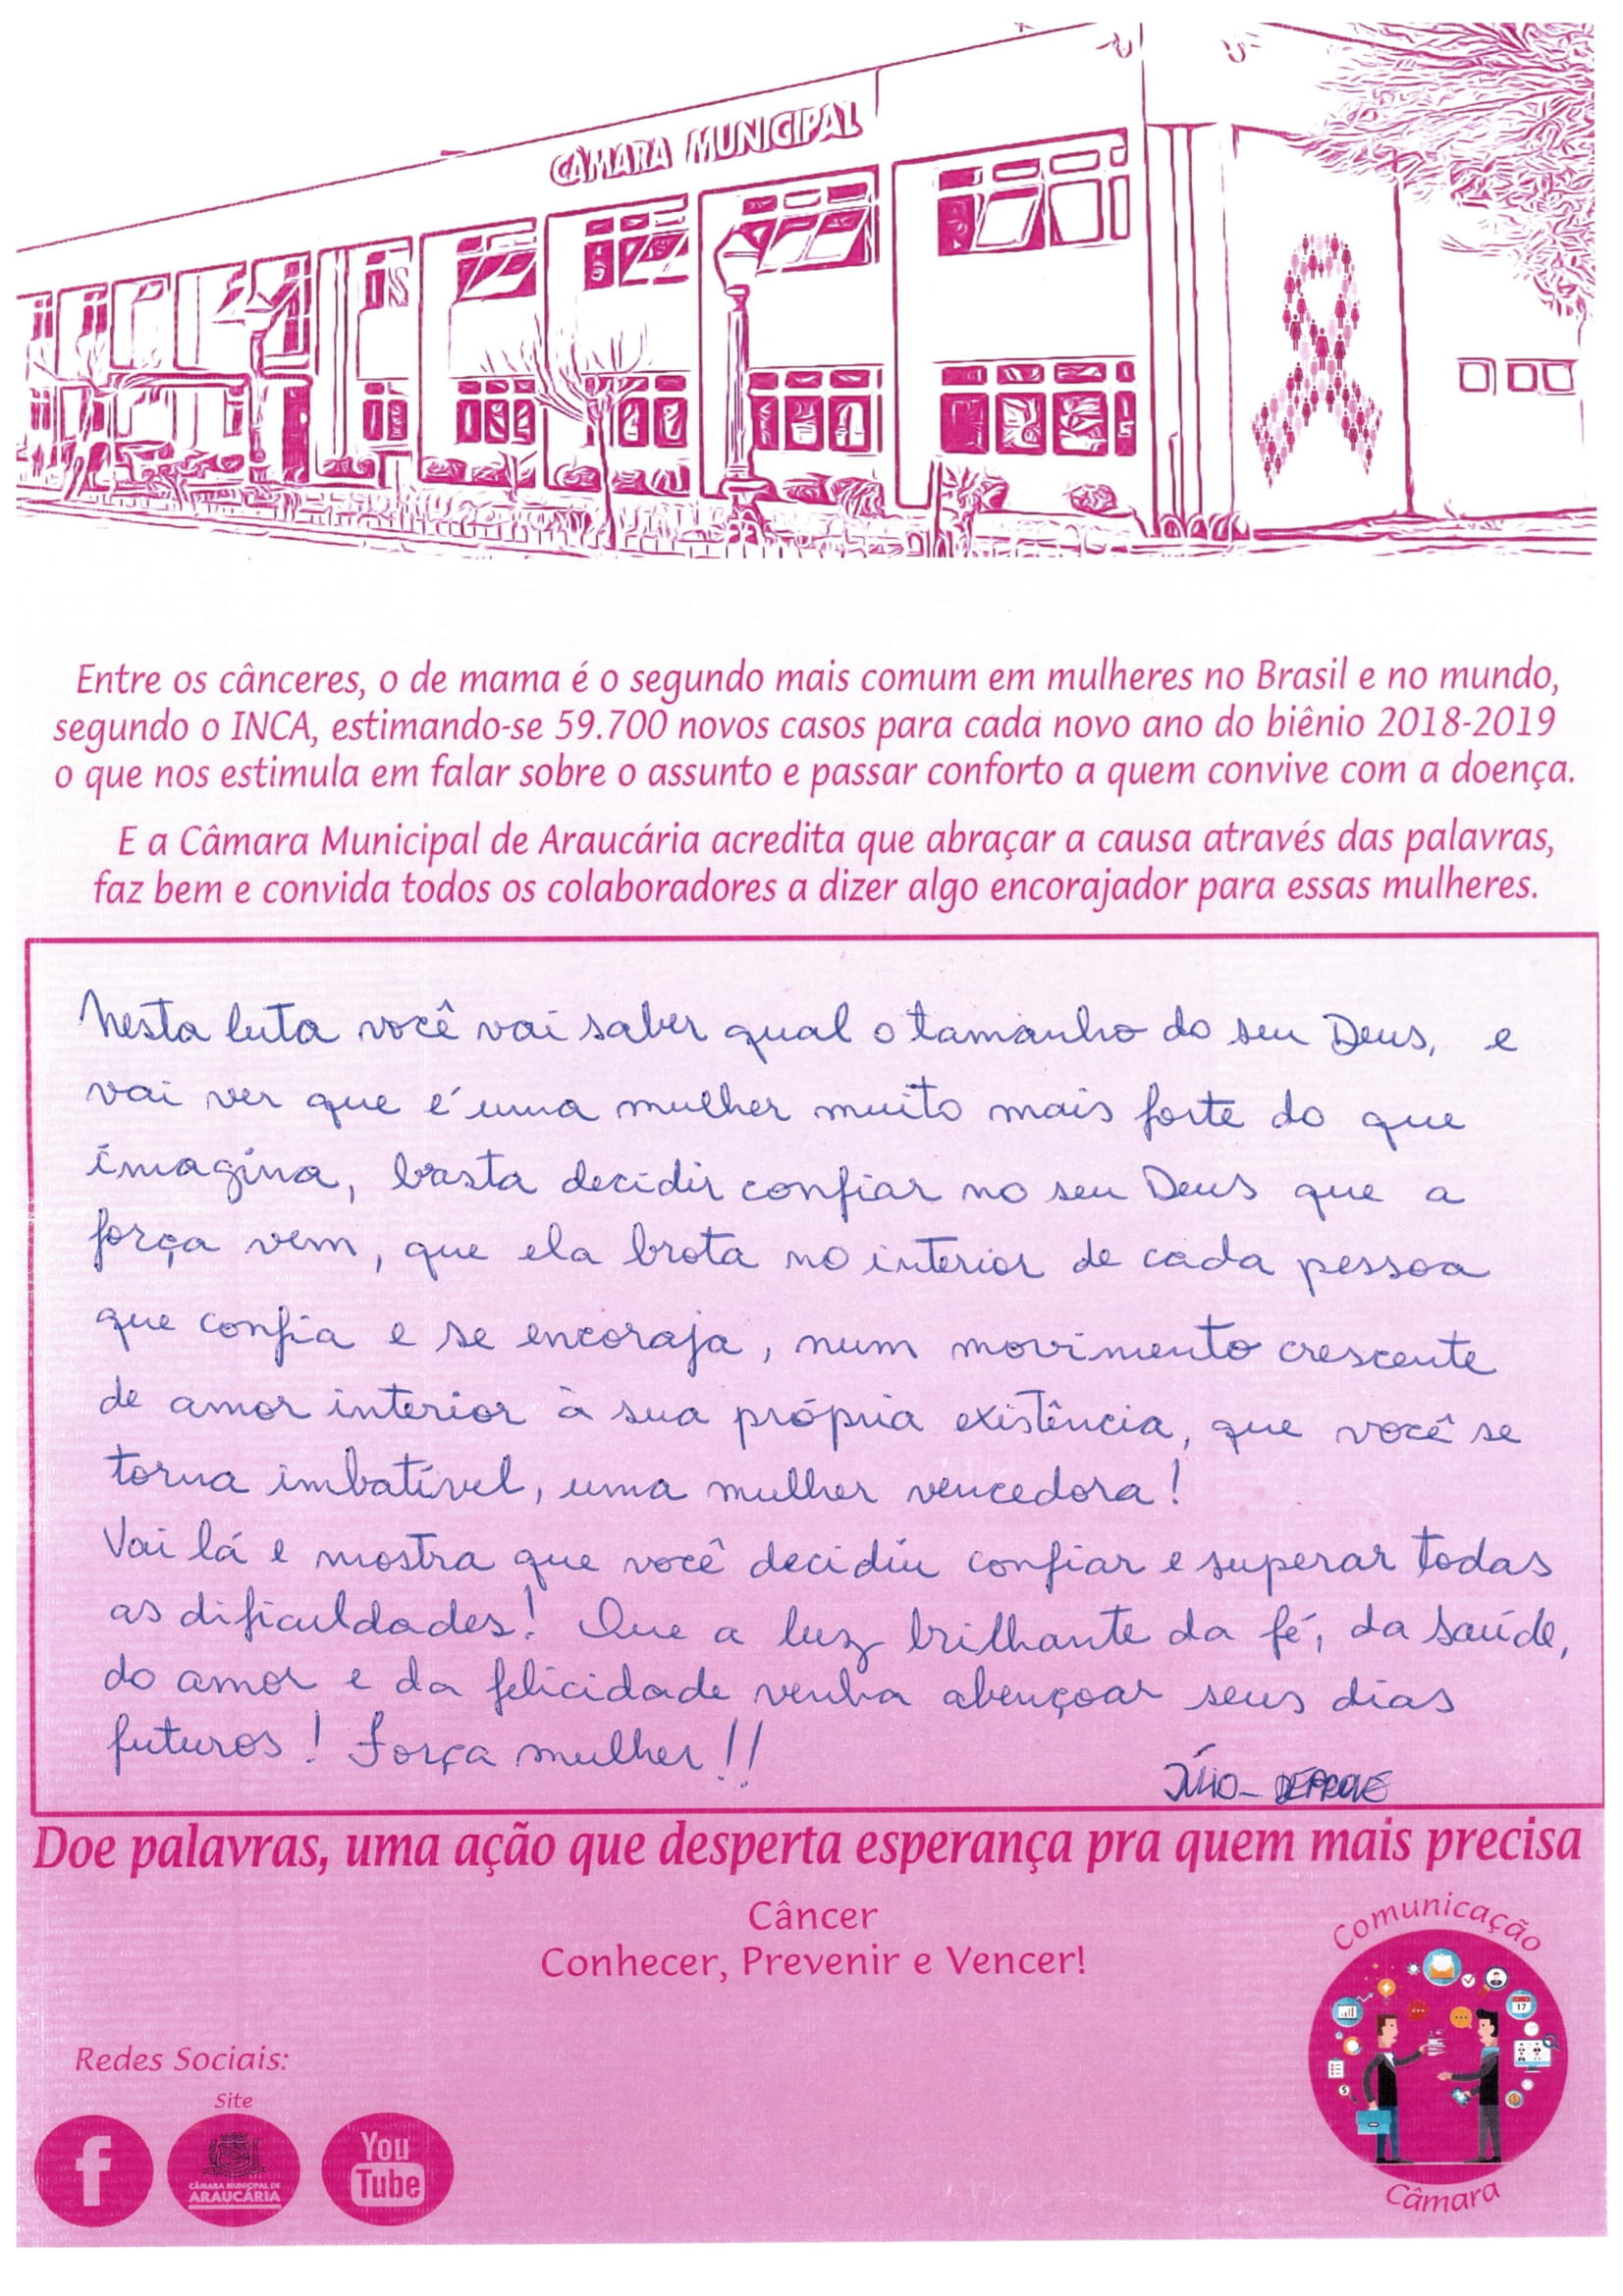 CÂMARA MUNICIPAL
Entre os cânceres, o de mama é o segundo mais comum em mulheres no Brasil e no mundo,
segundo o INCA, estimando-se 59.700 novos casos para cada novo ano do biênio 2018-2019
o que nos estimula em falar sobre o assunto e passar conforto a quem convive com a doença.
E a Câmara Municipal de Araucária acredita que abraçar a causa através das palavras,
faz bem e convida todos os colaboradores a dizer algo encorajador para essas mulheres.
Nesta luta você vai saber qual o tamanho do seu Deus, e
vai ver que é uma mulher muito mais forte do que
imagina, basta decidir confiar no seu Deus que a
força vem, que ela brota no interior de cada pessoa
que confia e se encoraja, num movimento crescente
de amor interior à sua própria existência, que você se
torna imbatível, uma mulher vencedora!
Vai lá e mostra que você decidiu confiar e superar todas
as dificuldades! Que a luz brilhante da fé, da saúde,
do amor e da felicidade venha abençoar seus dias
futuros! Força mulher!!
Júlio -
Doe palavras, uma ação que desperta esperança pra quem mais precisa
Câncer
Conhecer, Prevenir e Vencer!
Comunicação
17
Câmara
Redes Sociais:
Site
f
CÂMARA MUNICIPAL DE
ARAUCÁRIA
You
Tube